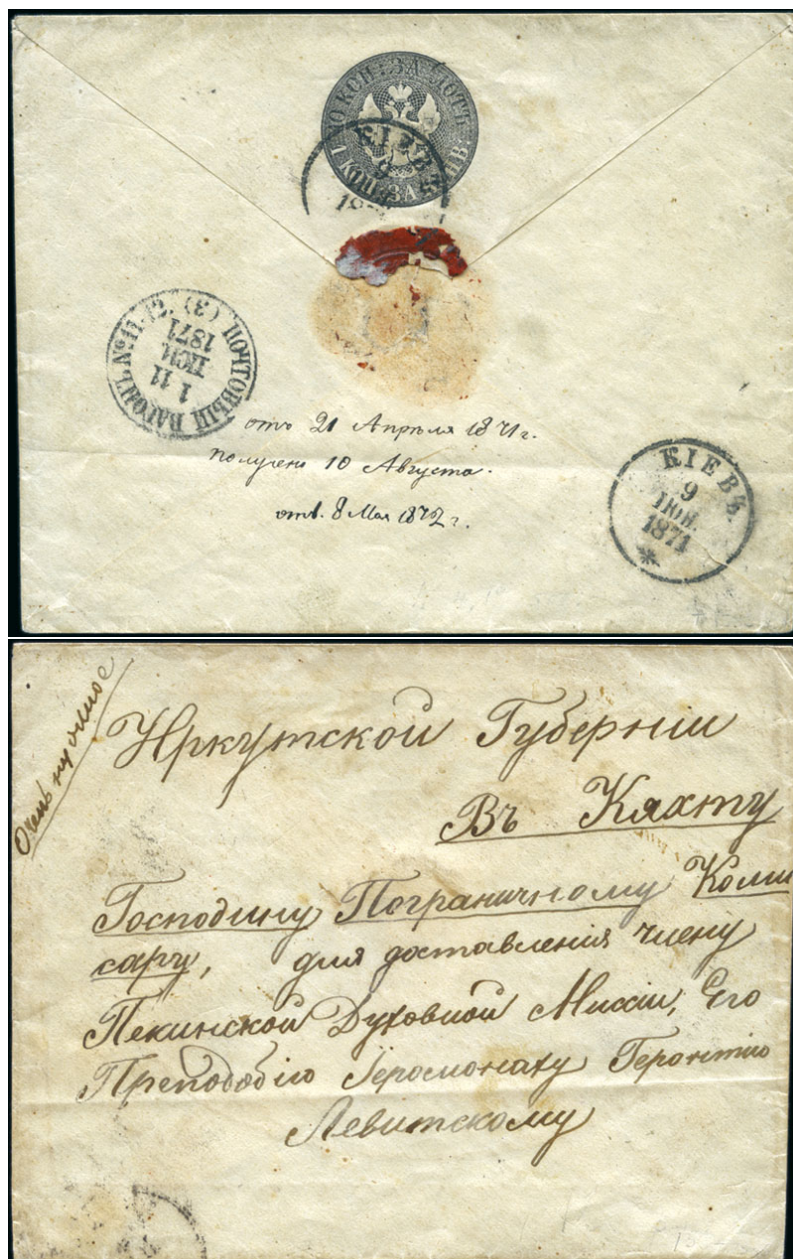 10 КОП: ЗА ЛОТЪ
1 КОП: ЗА КОНВ.
КІЕВЪ
9
18
ПОЧТОВЫЙ ВАГОНЪ № 11-12. (3)
1 11
ІЮН.
1871
отъ 21 Апрѣля 1871 г.
получено 10 Августа.
отв. 8 Мая 1872 г.
КІЕВЪ.
9
ІЮН.
1871
Очень нужное
Иркутской Губерніи
Въ Кяхту
Господину Пограничному Коми
сару, для доставленія члену
Пекинской Духовной Миссіи, Его
Преподобію Іеромонаху Геронтію
Левитскому